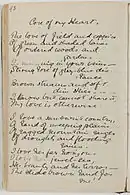 Core of my Heart.
The love of field and coppice
Of green and shaded lanes
Of ordered woods and
gardens
Is running in your veins
Strong love of grey blue distance
Brown streams & soft
dim skies
I know but cannot share it
My love is otherwise
I love a sunburnt country
A land of sweeping plains
Of ragged mountain ranges
Of droughts and flooding
rains
I love her far horizons
I love her jewel sea
Her beauty and her terror
The wide brown land for
me!